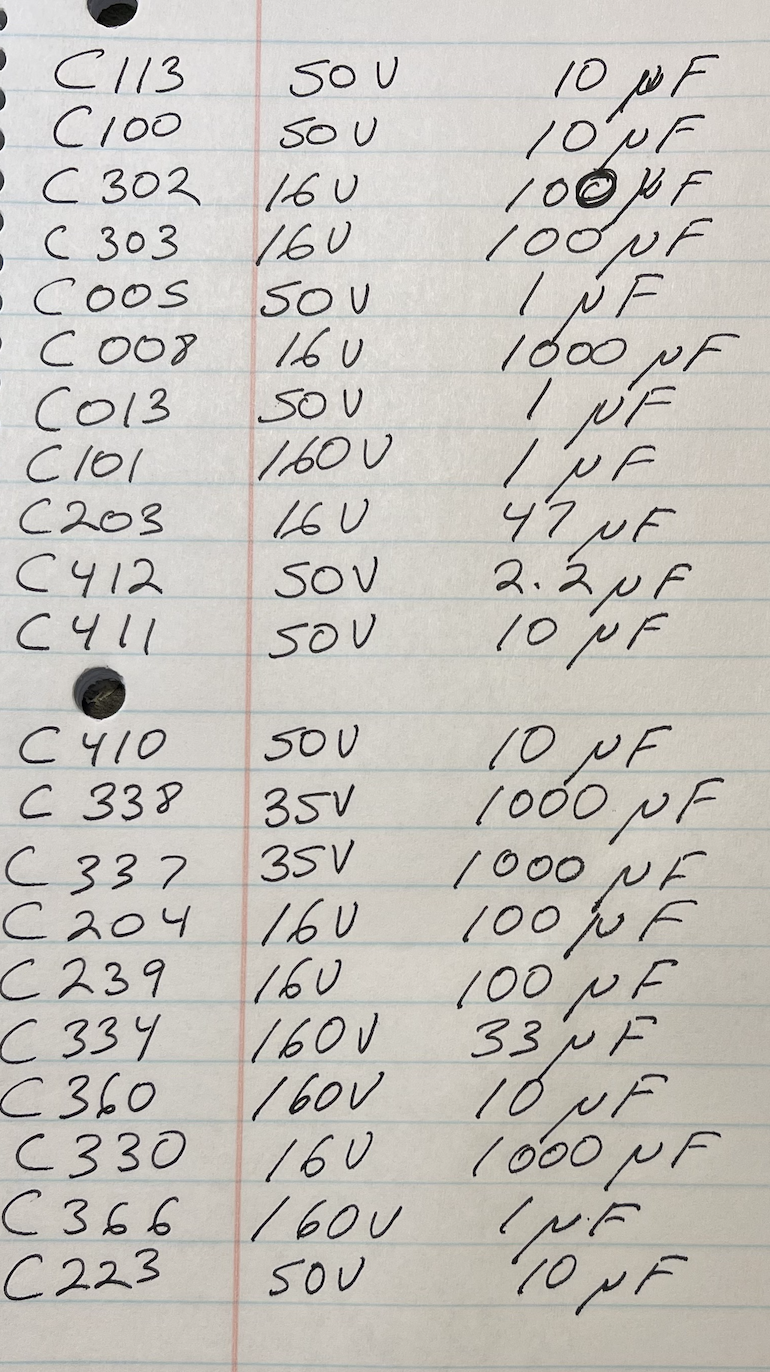 C113 50V 10 µF
C100 50V 10 µF
C302 16V 100 µF
C303 16V 100 µF
C005 50V 1 µF
C008 16V 1000 µF
C013 50V 1 µF
C101 160V 1 µF
C203 16V 47 µF
C412 50V 2.2 µF
C411 50V 10 µF
C410 50V 10 µF
C338 35V 1000 µF
C337 35V 1000 µF
C204 16V 100 µF
C239 16V 100 µF
C334 160V 33 µF
C360 160V 10 µF
C330 16V 1000 µF
C366 160V 1 µF
C223 50V 10 µF